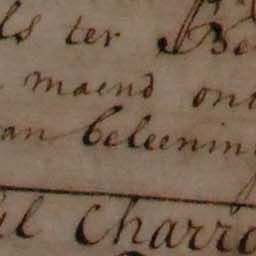 ls ter Be
maend on
an beleenin
el Charro